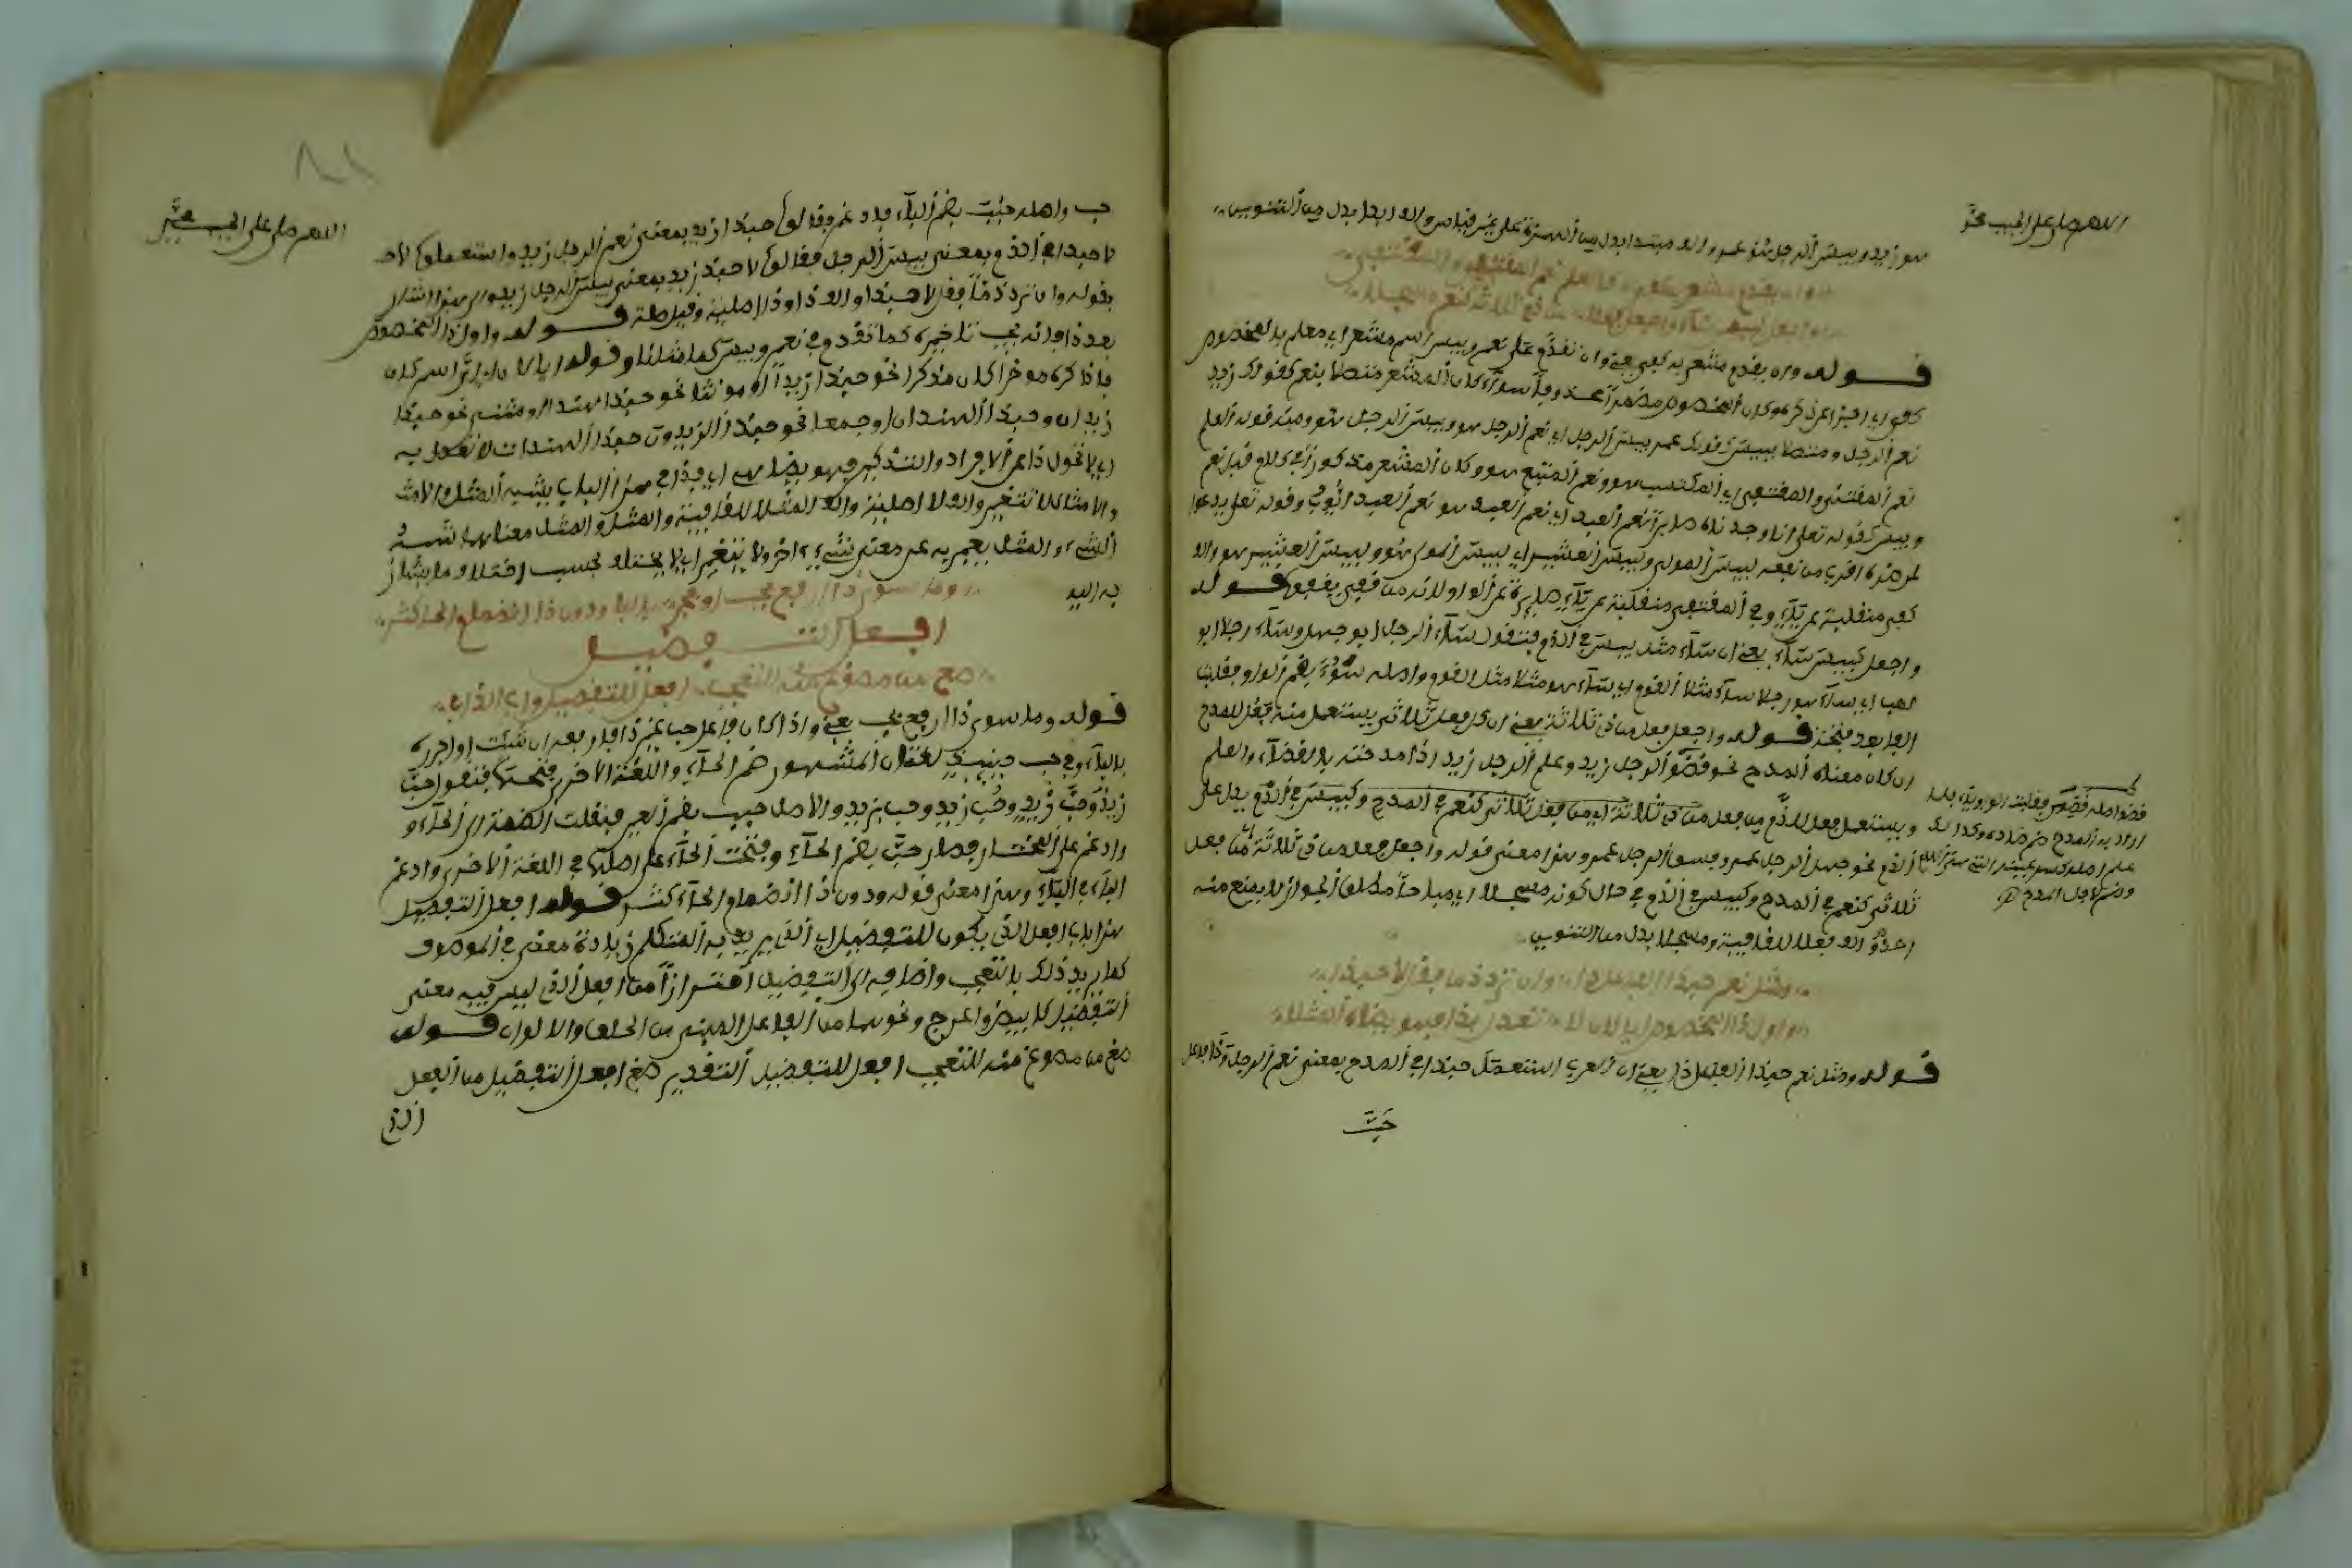 اللهم صل على الحبيب محمد
هو زيد وبيس الرجل هو عمرو والف مبتدا بدل من الهمزة على غير قياس والف ابدا بدل من التنوين
وان يقدم مشعر به كفى كالعلم نعم المقتنى والمقتفى
واجعل كبيس ساء واجعل فعلا من ذي ثلاثة كنعم مسجلا
قوله وان يقدم مشعر به كفى يعني وان تقدم على نعم وبيس اسم مشعر اي معلم بالمخصوص
كفى اي اجزا عن ذكره وكان المخصوص مضمرا بعد وسواء كان المشعر متصلا بنعم كقولك زيد
نعم الرجل ومتصلا ببيس كقولك عمر بيس الرجل اي نعم الرجل هو وبيس الرجل هو ومنه قوله العلم
نعم المقتنى والمقتفى اي المكتسب هو ونعم المتبع هو وكان المشعر مذكورا في كلام قبل نعم
وبيس كقوله تعلى انا وجدناه صابرا نعم العبد اي نعم العبد هو نعم العبد ايوب وقوله تعلى يدعوا
لمن ضره اقرب من نفعه لبيس المولى ولبيس العشير اي لبيس المولى هو ولبيس العشير هو والف
كفى منقلبة عن ياء وفي المقتفى منقلبة عن ياء صايرة عن الواو لانه من قفى يقفو قوله
واجعل كبيس ساء يعني ان ساء مثل بيس في الذم فتقول ساء الرجل ابو جهل وساء رجلا ابو
لهب اي ساء هو رجلا ساء مثلا القوم اي ساء هو مثلا مثل القوم واصله سوء بضم الواو فقلبت
الفا بعد فتحة قوله واجعل فعلا من ذي ثلاثة يعني ان كل فعل ثلاثي يستعمل منه فعل للمدح
ان كان معناه المدح نحو قضو الرجل زيد وعلم الرجل زيد اذا مدحته بالقضاء والعلم
ويستعمل فعل للذم من فعل من ذي ثلاثة اي من فعل ثلاثي كنعم في المدح وكبيس في الذم يدل على
الذم نحو جهل الرجل عمر وفسق الرجل عمر وهذا معنى قوله واجعل فعلا من ذي ثلاثة من فعل
ثلاثي كنعم في المدح وكبيس في الذم في حال كونه مسجلا اي مباحا مطلق الجواز لا يمنع منه
احد والف فعلا للقافية ومسجلا بدل من التنوين
قضو اصله قضي فقلبت الياء واوا
اراد به المدح ضم ضاده وكذلك
علم اصله كسر عينه
وضم لاجل المدح
ومثل نعم حبذا الفاعل ذا وان ترد ذما فقل لا حبذا
واول ذا المخصوص ايا كان لا تعدل بذا فهو يضاهي المثلا
قوله ومثل نعم حبذا الفاعل ذا يعني ان العرب استعملت حبذا في المدح بمعنى نعم الرجل وذا فاعل
حب
اللهم صل على الحبيب محمد
حب واصله حبب بضم الباء فادغم وقالوا حبذا زيد بمعنى نعم الرجل زيد واستعملوا لاحـ
لا حبذا في الذم وبمعنى بيس الرجل فقالوا لا حبذا زيد بمعنى بيس الرجل زيد والى هذا اشار
بقوله وان ترد ذما فقل لا حبذا والف ذا وذا اصلية وقيل صلة قوله واول ذا المخصوص
بعد ذا فانه يجب تاخيره كما تقدم في نعم وبيس كما مثلنا وقوله ايا كان اي اي اسم كان
فاذا كره موخرا كان مذكرا نحو حبذا زيد او مونثا نحو حبذا هند او مثنى نحو حبذا
زيدان وحبذا الهندان او جمعا نحو حبذا الزيدون حبذا الهندات لا تعدل به
اي لا تحول ذا عن الافراد والتذكير فهو يضاهي اي فذا في هذا الباب يشبه المثل والامثـ
والامثال لا تتغير والف لا اصلية والف المثلا للقافية والمثل والمثل معناهما شبه
الشيء والمثل يعبر به عن معنى شيء اخر ولا يتغير اي لا يختلف بحسب اختلاف ما يشار
به اليه
وما سوى ذا ارفع بحب او فجر بالبا ودون ذا انضمام الحا كثر
افعل التفضيل
صغ من مصوغ منه للتعجب افعل للتفضيل واب اللذ ابي
قوله وما سوى ذا ارفع بحب يعني واذا كان فاعل حب غير ذا فارفعه ان شئت او اجرره
بالباء وفي حب حينيذ لغتان المشهور ضم الحاء واللغة الاخرى فتحها فتقول حب
زيد وحب زيد وحب زيد وحب بزيد والاصل حبب بضم العين فنقلت الضمة الى الحاء و
وادغم على المختار فصار حب بضم الحاء وفتحت الحاء على اصلها في اللغة الاخرى وادغم
الباء في الباء وهذا معنى قوله ودون ذا انضمام الحاء كثر قوله افعل التفضيل
هذا باب افعل الذي يكون للتفضيل اي الذي يريد به المتكلم زيادة معنى في الموصوف
كما يريد ذلك بالتعجب واضافه الى التفضيل احترازا من افعل الذي ليس فيه معنى
التفضيل كابيض واعرج ونحوهما من الفاعل المبني من الخلق والالوان قوله
صغ من مصوغ منه للتعجب افعل للتفضيل التقدير صغ افعل التفضيل من الفعل
الذي